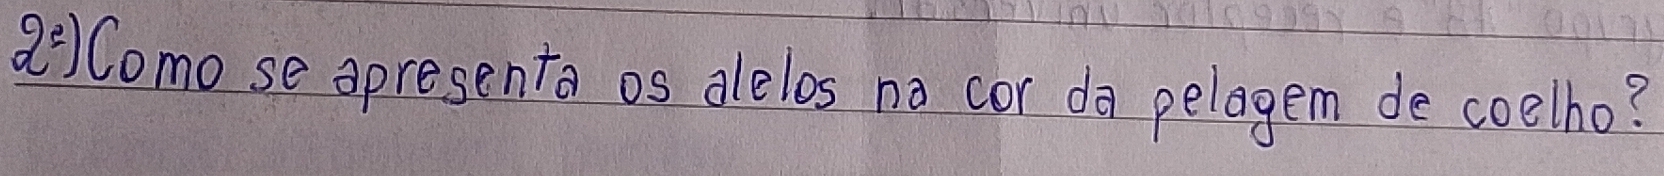 2ª) Como se apresenta os alelos na cor da pelagem de coelho?